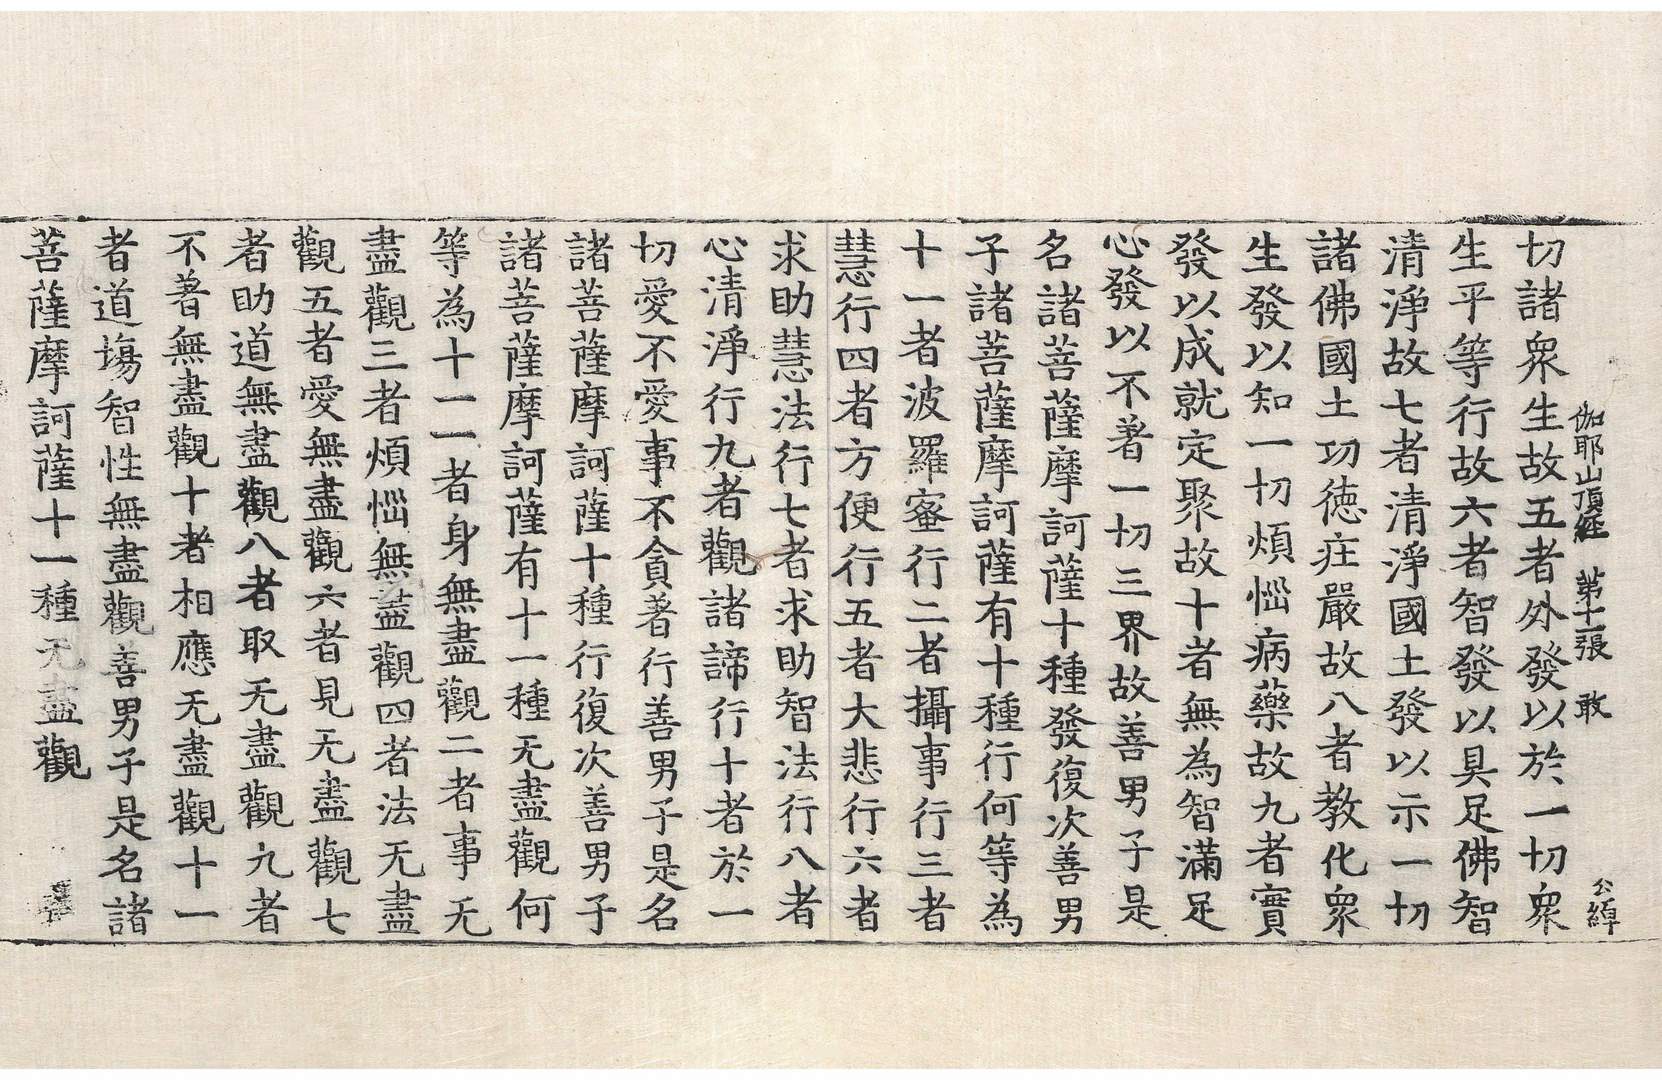 伽耶山頂經 第十一張 敢 公綽
切諸衆生故五者外發以於一切衆
生平等行故六者智發以具足佛智
清淨故七者清淨國土發以示一切
諸佛國土功德庄嚴故八者教化衆
生發以知一切煩惱病藥故九者實
發以成就定聚故十者無為智滿足
心發以不著一切三界故善男子是
名諸菩薩摩訶薩十種發復次善男
子諸菩薩摩訶薩有十種行何等為
十一者波羅蜜行二者攝事行三者
慧行四者方便行五者大悲行六者
求助慧法行七者求助智法行八者
心清淨行九者觀諸諦行十者於一
切愛不愛事不貪著行善男子是名
諸菩薩摩訶薩十種行復次善男子
諸菩薩摩訶薩有十一種无盡觀何
等為十一一者身無盡觀二者事无
盡觀三者煩惱無盡觀四者法无盡
觀五者愛無盡觀六者見无盡觀七
者助道無盡觀八者取无盡觀九者
不著無盡觀十者相應无盡觀十一
者道場智性無盡觀善男子是名諸
菩薩摩訶薩十一種无盡觀